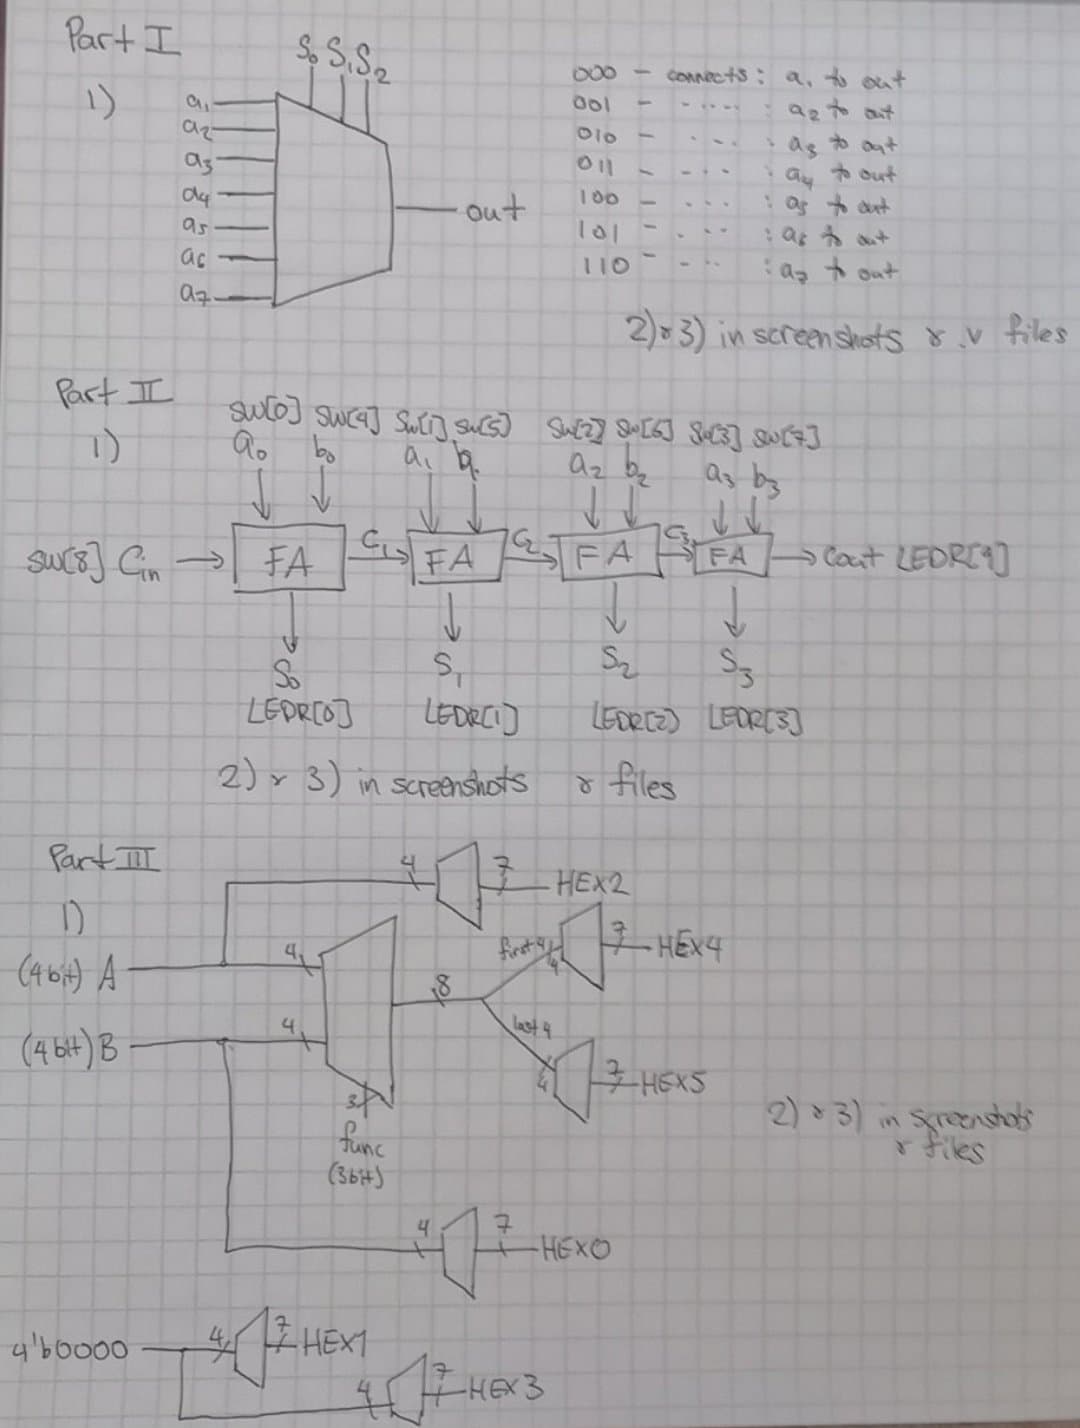 Part I
S0 S1 S2
1)
a1
a2
a3
a4
a5
a6
a7
out
000 - connects : a1 to out
001 - ..... : a2 to out
010 - .... : a3 to out
011 - .... : a4 to out
100 - .... : a5 to out
101 - .... : a6 to out
110 - .... : a7 to out
2) & 3) in screenshots & .v files
Part II
1)
SW[0] SW[4] SW[1] SW[5] SW[2] SW[6] SW[3] SW[7]
a0 b0 a1 b1 a2 b2 a3 b3
SW[8] Cin → FA C1 FA C2 FA C3 FA → Cout LEDR[9]
S0 S1 S2 S3
LEDR[0] LEDR[1] LEDR[2] LEDR[3]
2) & 3) in screenshots & files
Part III
1)
4 7 HEX2
first 4 4 7 HEX4
(4 bit) A 4
8
(4 bit) B 4
last 4
4 7 HEX5
3
func
(3 bit)
2) & 3) in screenshots
& files
4 7 HEX0
4'b0000 4 7 HEX1
4 7 HEX3